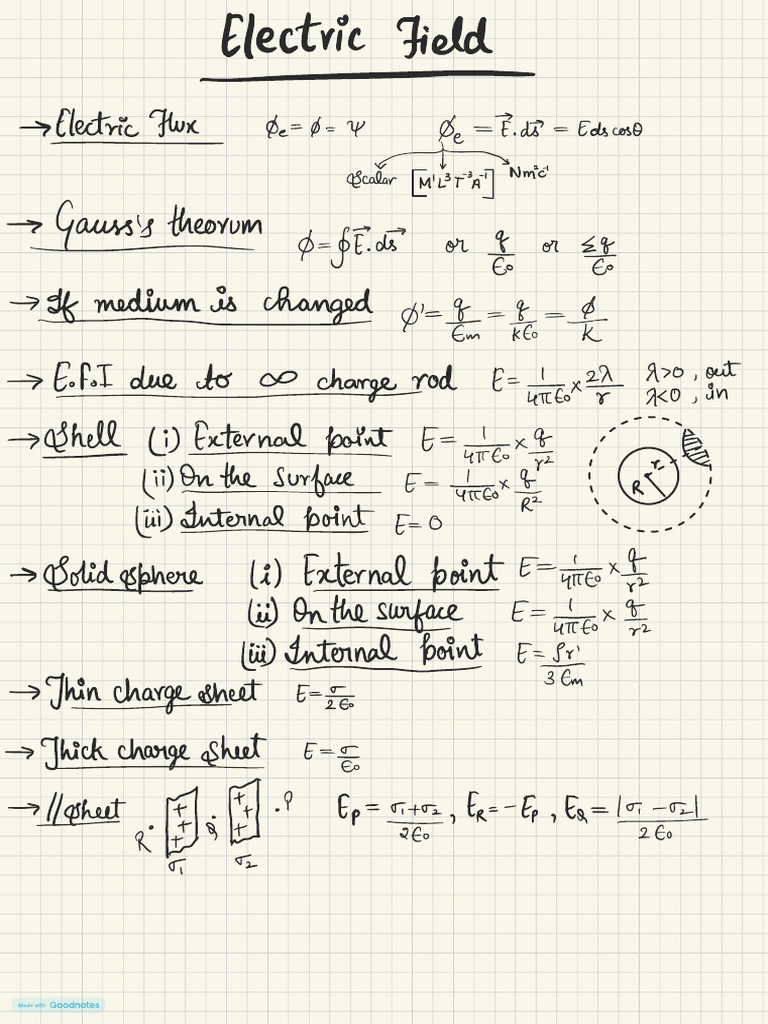 Electric Field
→ Electric Flux ϕe = ϕ = ψ ϕe = E⃗.ds⃗ = Edscosθ
Scalar [M¹L³T⁻³A⁻¹] Nm²c⁻¹
→ Gauss's theorum ϕ = ∮E⃗.ds⃗ or q/ϵ₀ or Σq/ϵ₀
→ If medium is changed ϕ' = q/ϵm = q/kϵ₀ = ϕ/k
→ E.F.I due to ∞ charge rod E = 1/4πϵ₀ × 2λ/r λ>0, out
λ<0, in
→ Shell (i) External point E = 1/4πϵ₀ × q/r²
(ii) On the surface E = 1/4πϵ₀ × q/R²
(iii) Internal point E = 0
r
R
→ Solid sphere (i) External point E = 1/4πϵ₀ × q/r²
(ii) On the surface E = 1/4πϵ₀ × q/r²
(iii) Internal point E = ρr'/3ϵm
→ Thin charge sheet E = σ/2ϵ₀
→ Thick charge sheet E = σ/ϵ₀
→ // sheet R. + + + σ₁ Q. + + + σ₂ .P Ep = σ₁+σ₂/2ϵ₀, ER = -Ep, EQ = |σ₁-σ₂|/2ϵ₀
Made with Goodnotes